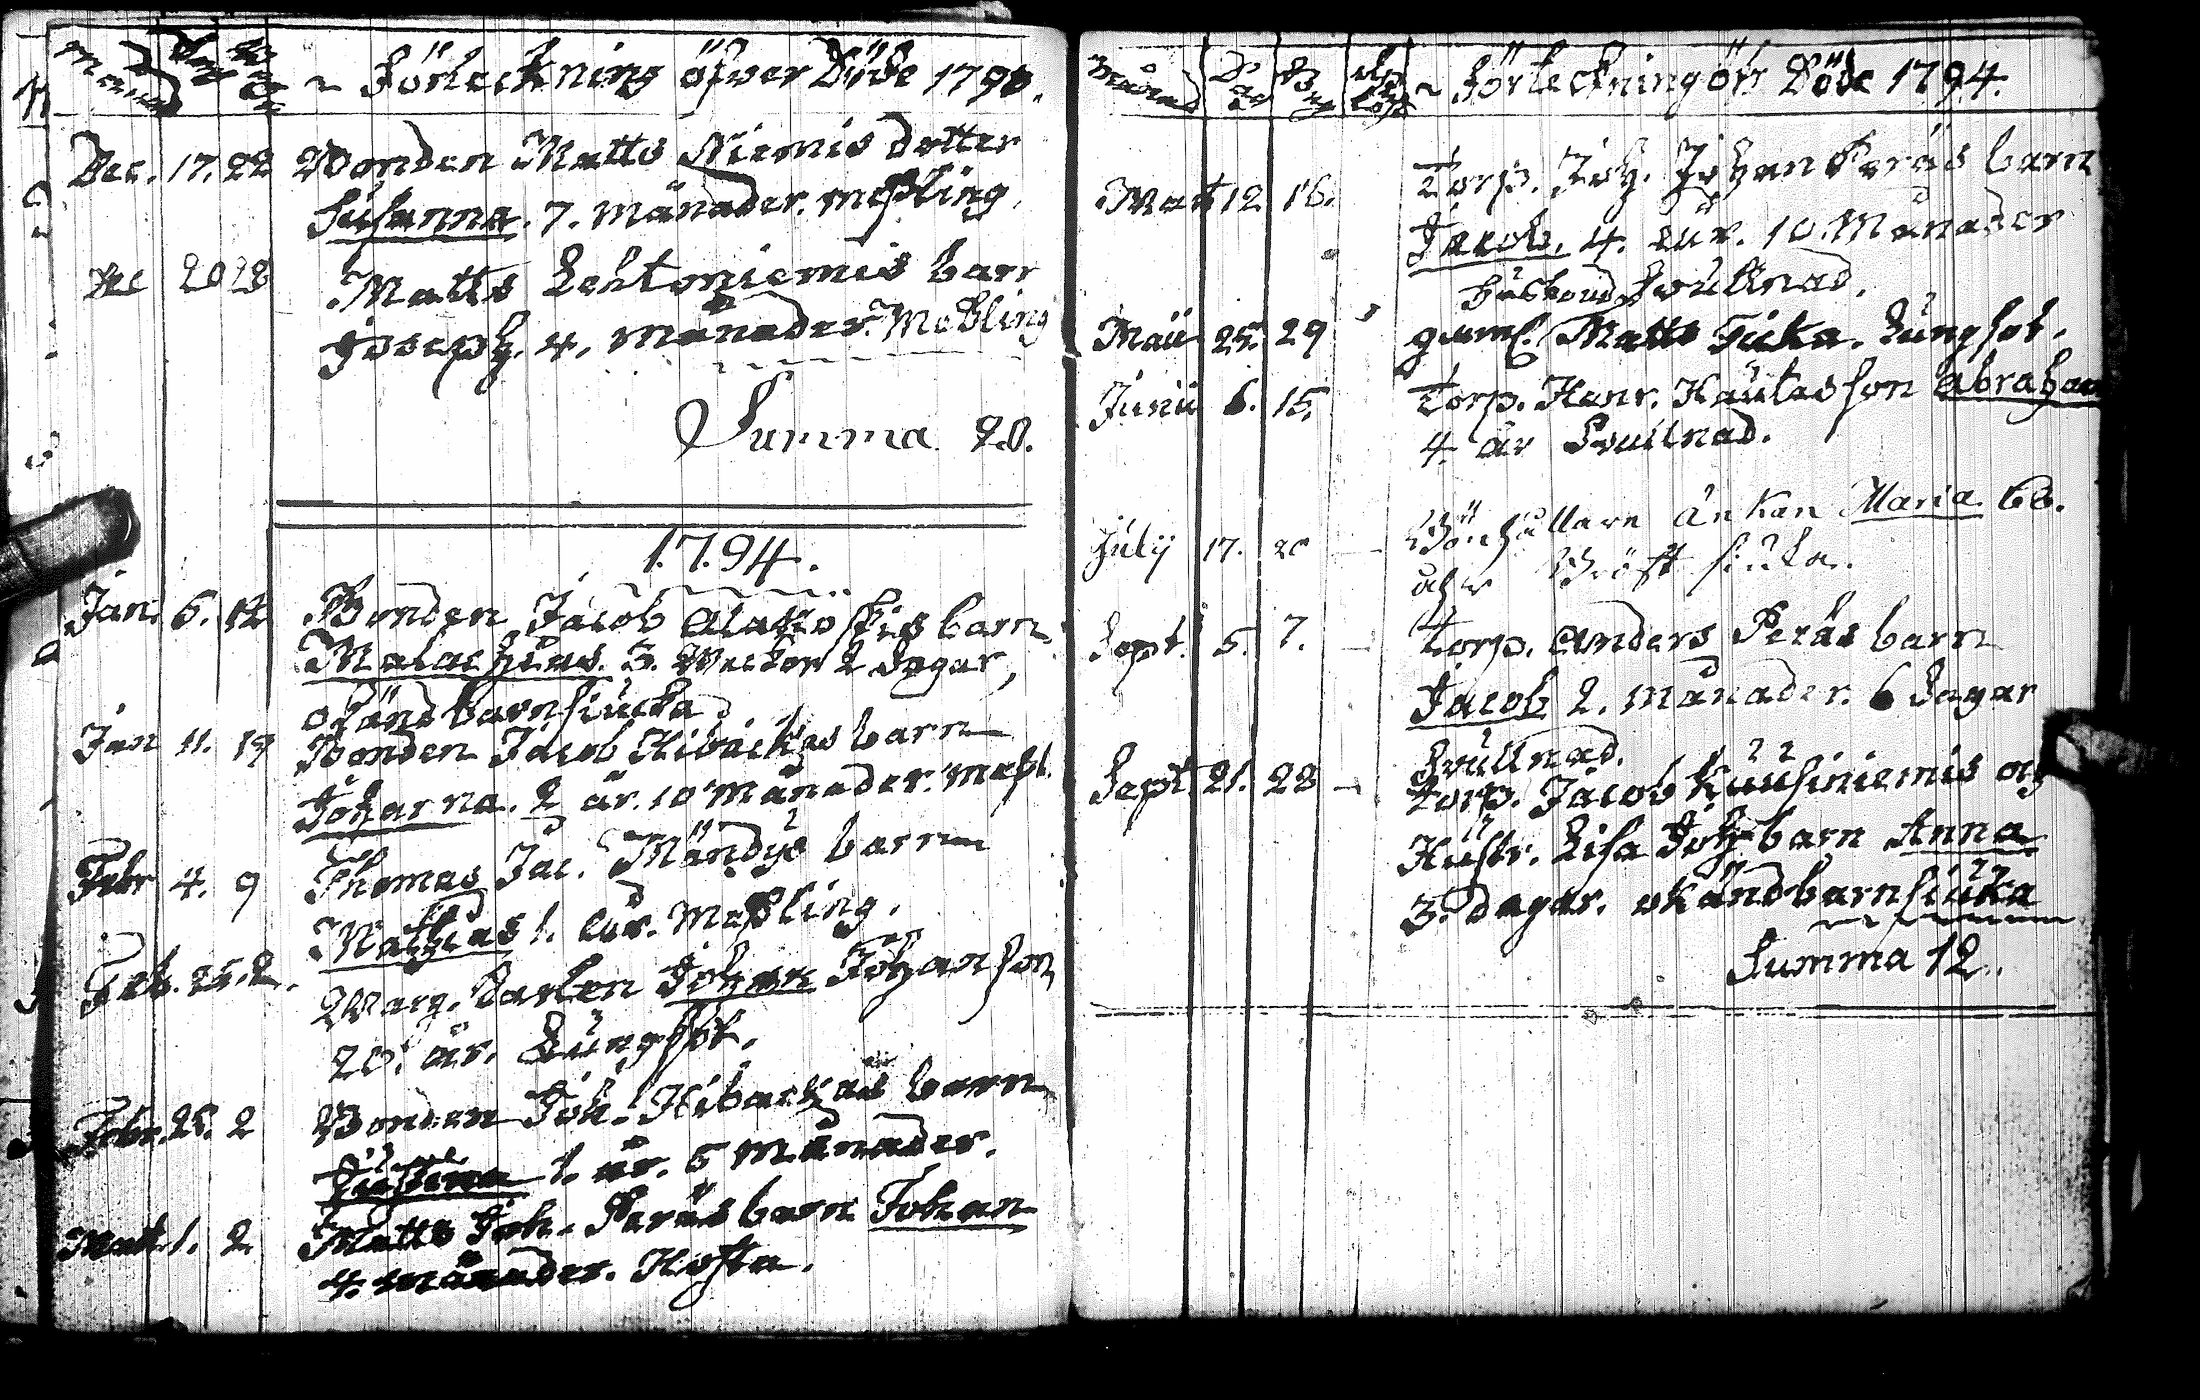 Månad Dag
~ Förteckning öfver Döde 1793.
Dec. 17. 22 Bonden Matts Niemis dotter
Susanna. 7. månader. mäßling.
Dec 20 28 Matts Lehtoniemis barn
Joseph. 4. månader. Mäßling
Summa 28.
1794.
Jan. 6. 12 Bonden Jacob barn
Malachias. 3. Weckor 2 dagar,
okänd barnsiucka
Jan 11. 19 Bonden Jacob Hibackas barn
Johanna. 2 år. 10 månader. mäßl.
Febr 4. 9 Thomas Jac. Mändys barn
Mathias 1. år. Mäßling.
Feb. 25. 2. Karlen Johan Johansson
20. år. Lungsot.
Febr. 25. 2 Bonden Joh. Hibackas barn
Justina 1. år. 5 månader.
Mart. 1. 2 Matts Joh. Peräs barn Johan
4. månader. Hosta.
Månad Dag
~ Förteckning öfr Döde 1794.
Mart 12 16. Torp. Joh. Johan Peräs barn
Jacob. 4. år. 10 Månader
Svullnad.
Maii 25. 29 gaml. Matts Ticka. Lungsot.
Junii 6. 15. Torp. Henr. Hautas son Abraham
4. år Svullnad.
July 17. 20 änkan Maria 68.
åhr Bröst siuka.
Sept. 5. 7. Torp. Anders Peräs barn
Jacob 2. månader. 6 dagar
Svullnad.
Sept 21. 28 Torp. Jacob Kuusiniemis och
Hustr. Lisa Joh. barn Anna
3. dagar. okänd barnsiuka
Summa 12.